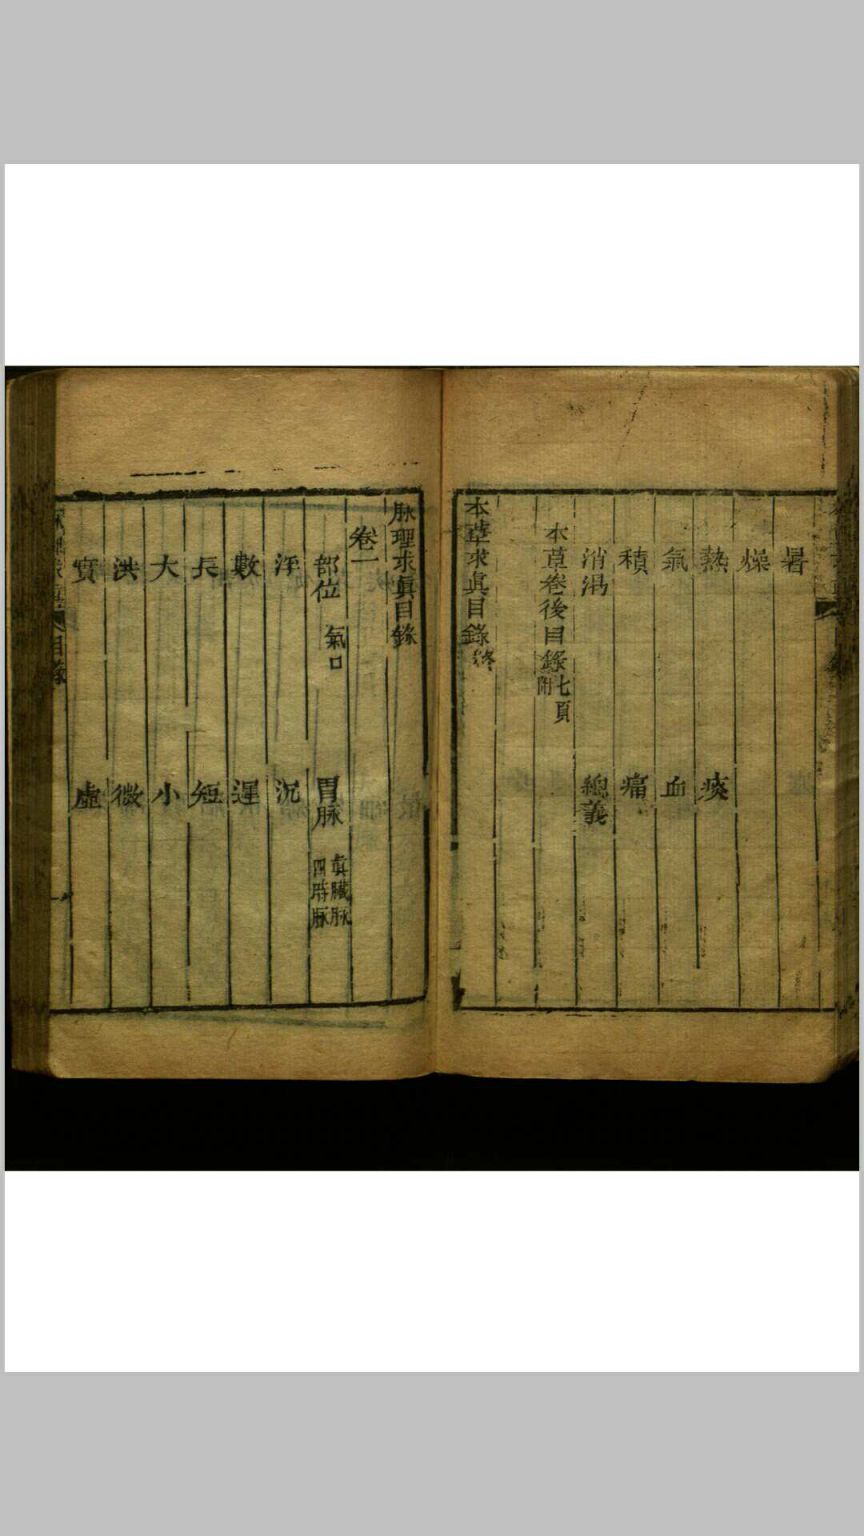 暑
燥
熱 痰
氣 血
積 痛
消渴 總義
本草卷後目錄 七頁附
本草求眞目錄 終
脉理求眞目錄
卷一
部位 氣口 胃脉 眞臟脉 四時脉
浮 沉
數 遲
長 短
大 小
洪 微
實 虛
目錄